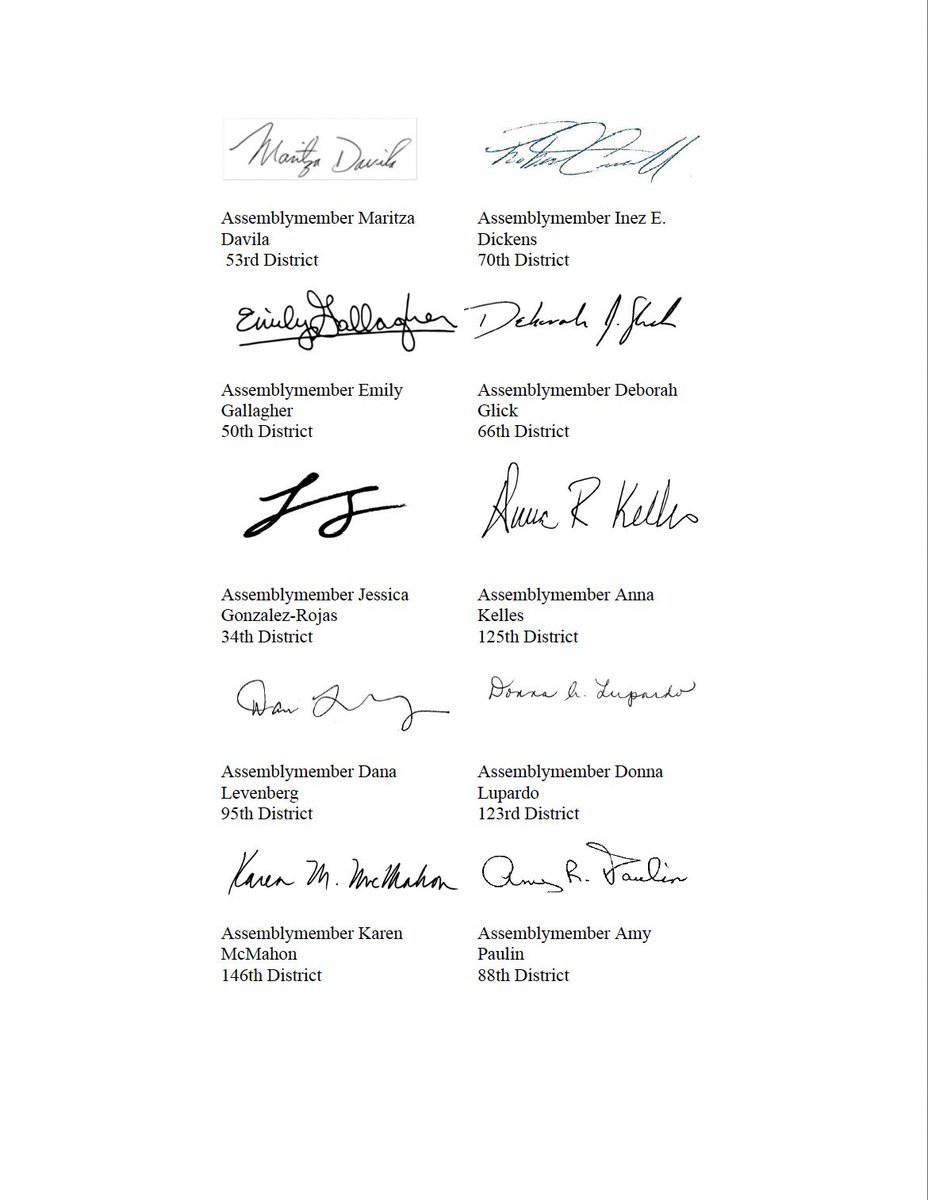 Maritza Davila
Assemblymember Maritza
Davila
53rd District
Robert Carroll
Assemblymember Inez E.
Dickens
70th District
Emily Gallagher
Deborah J. Glick
Assemblymember Emily
Gallagher
50th District
Assemblymember Deborah
Glick
66th District
Anna R Kelles
Assemblymember Jessica
Gonzalez-Rojas
34th District
Assemblymember Anna
Kelles
125th District
Donna A. Lupardo
Assemblymember Dana
Levenberg
95th District
Assemblymember Donna
Lupardo
123rd District
Karen M. McMahon
Amy R. Paulin
Assemblymember Karen
McMahon
146th District
Assemblymember Amy
Paulin
88th District